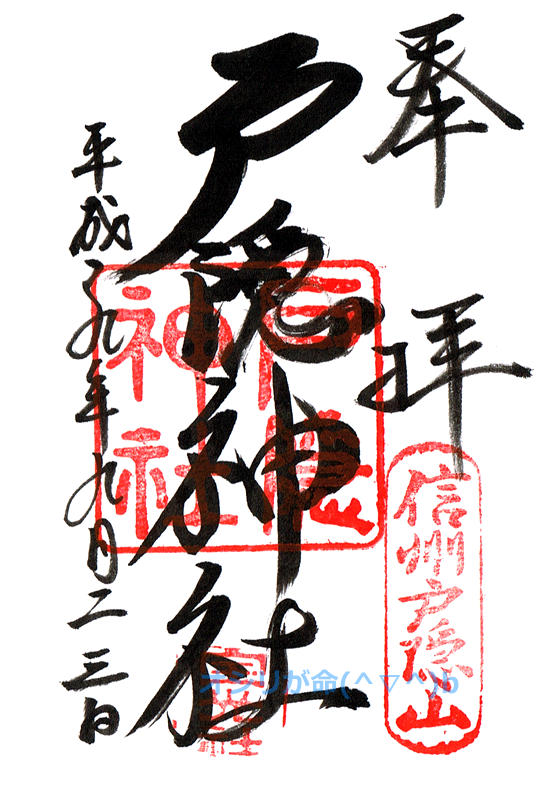 奉拝
信州戸隠山
戸隠神社
戸隠
神社
平成二九年九月二三日
オシリが命(^▽^)b